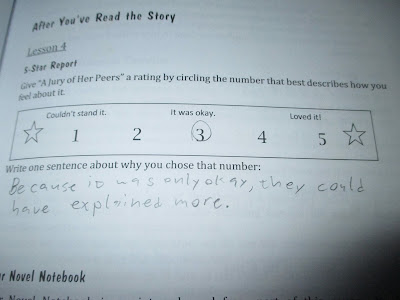 After You've Read the Story
Lesson 4
5-Star Report
Give "A Jury of Her Peers" a rating by circling the number that best describes how you
feel about it.
Couldn't stand it. It was okay. Loved it!
1 2 3 4 5
Write one sentence about why you chose that number:
Because it was only okay, they could
have explained more.
r Novel Notebook